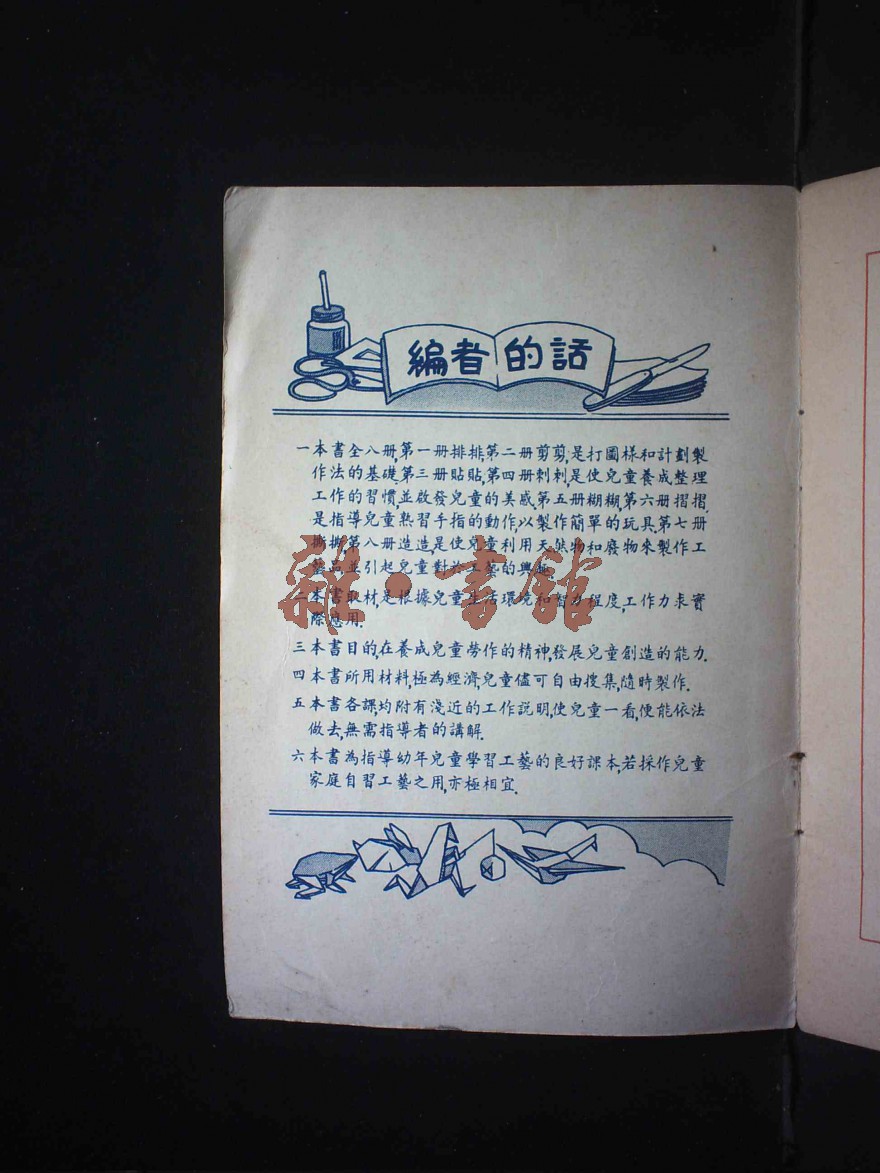 編者的話
一本書全八册,第一册排排,第二册剪剪,是打圖樣和計劃製
作法的基礎.第三册貼貼,第四册刺刺,是使兒童養成整理
工作的習慣,並啟發兒童的美感.第五册糊糊,第六册摺摺,
是指導兒童熟習手指的動作,以製作簡單的玩具.第七册
撕撕,第八册造造,是使兒童利用天然物和廢物來製作工
藝品,並引起兒童對於工藝的興趣.
二本書取材,是根據兒童生活環境和智力程度,工作力求實
際應用.
三本書目的,在養成兒童勞作的精神,發展兒童創造的能力.
四本書所用材料,極為經濟,兒童儘可自由搜集,隨時製作.
五本書各課,均附有淺近的工作説明,使兒童一看,便能依法
做去,無需指導者的講解.
六本書為指導幼年兒童學習工藝的良好課本,若採作兒童
家庭自習工藝之用,亦極相宜.
雜·書館